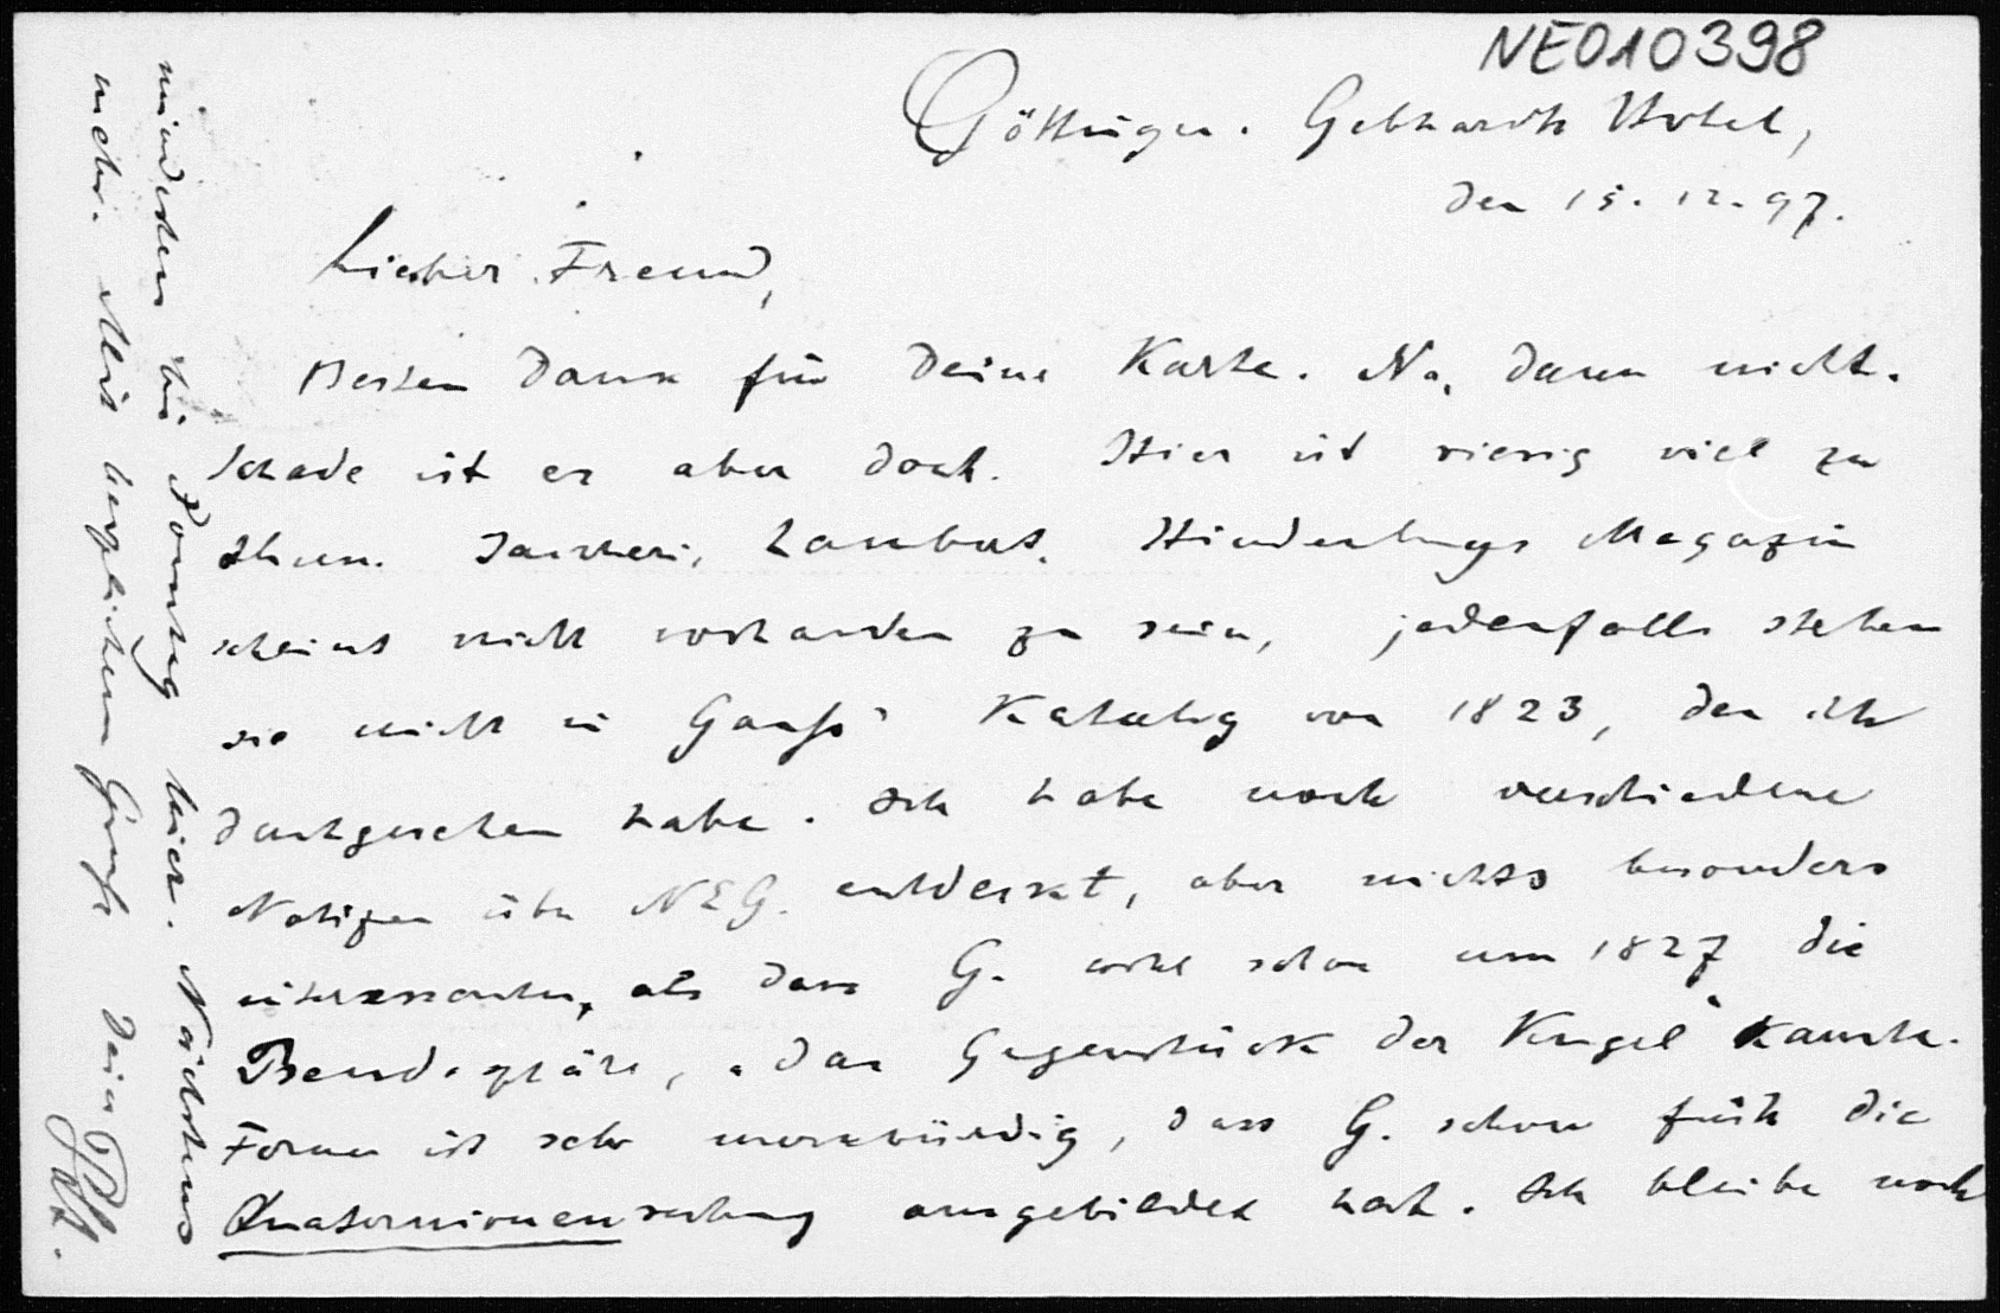 NE010398
Göttingen. Gebhards Hotel,
den 15.12.97.
Lieber Freund,
Besten Dank für Deine Karte. Na, dann nicht.
Schade ist es aber doch. Hier ist riesig viel zu
thun. Saccheri, Lambert, Hindenburgs Magazin
scheint nicht vorhanden zu sein, jedenfalls stehen
sie nicht in Gauß' Katalog von 1823, den ich
durchgesehen habe. Ich habe noch verschiedene
Notizen über NEG. entdeckt, aber nichts besonders
interessantes, als dass G. wohl schon um 1827 die
Pseudosphäre, „das Gegenstück der Kugel" kannte.
Ferner ist sehr merkwürdig, dass G. schon früh die
Quaternionenrechnung ausgebildet hat. Ich bleibe noch
mindestens bis Sonntag hier. Nächstens
mehr. Mit herzlichem Gruße Dein